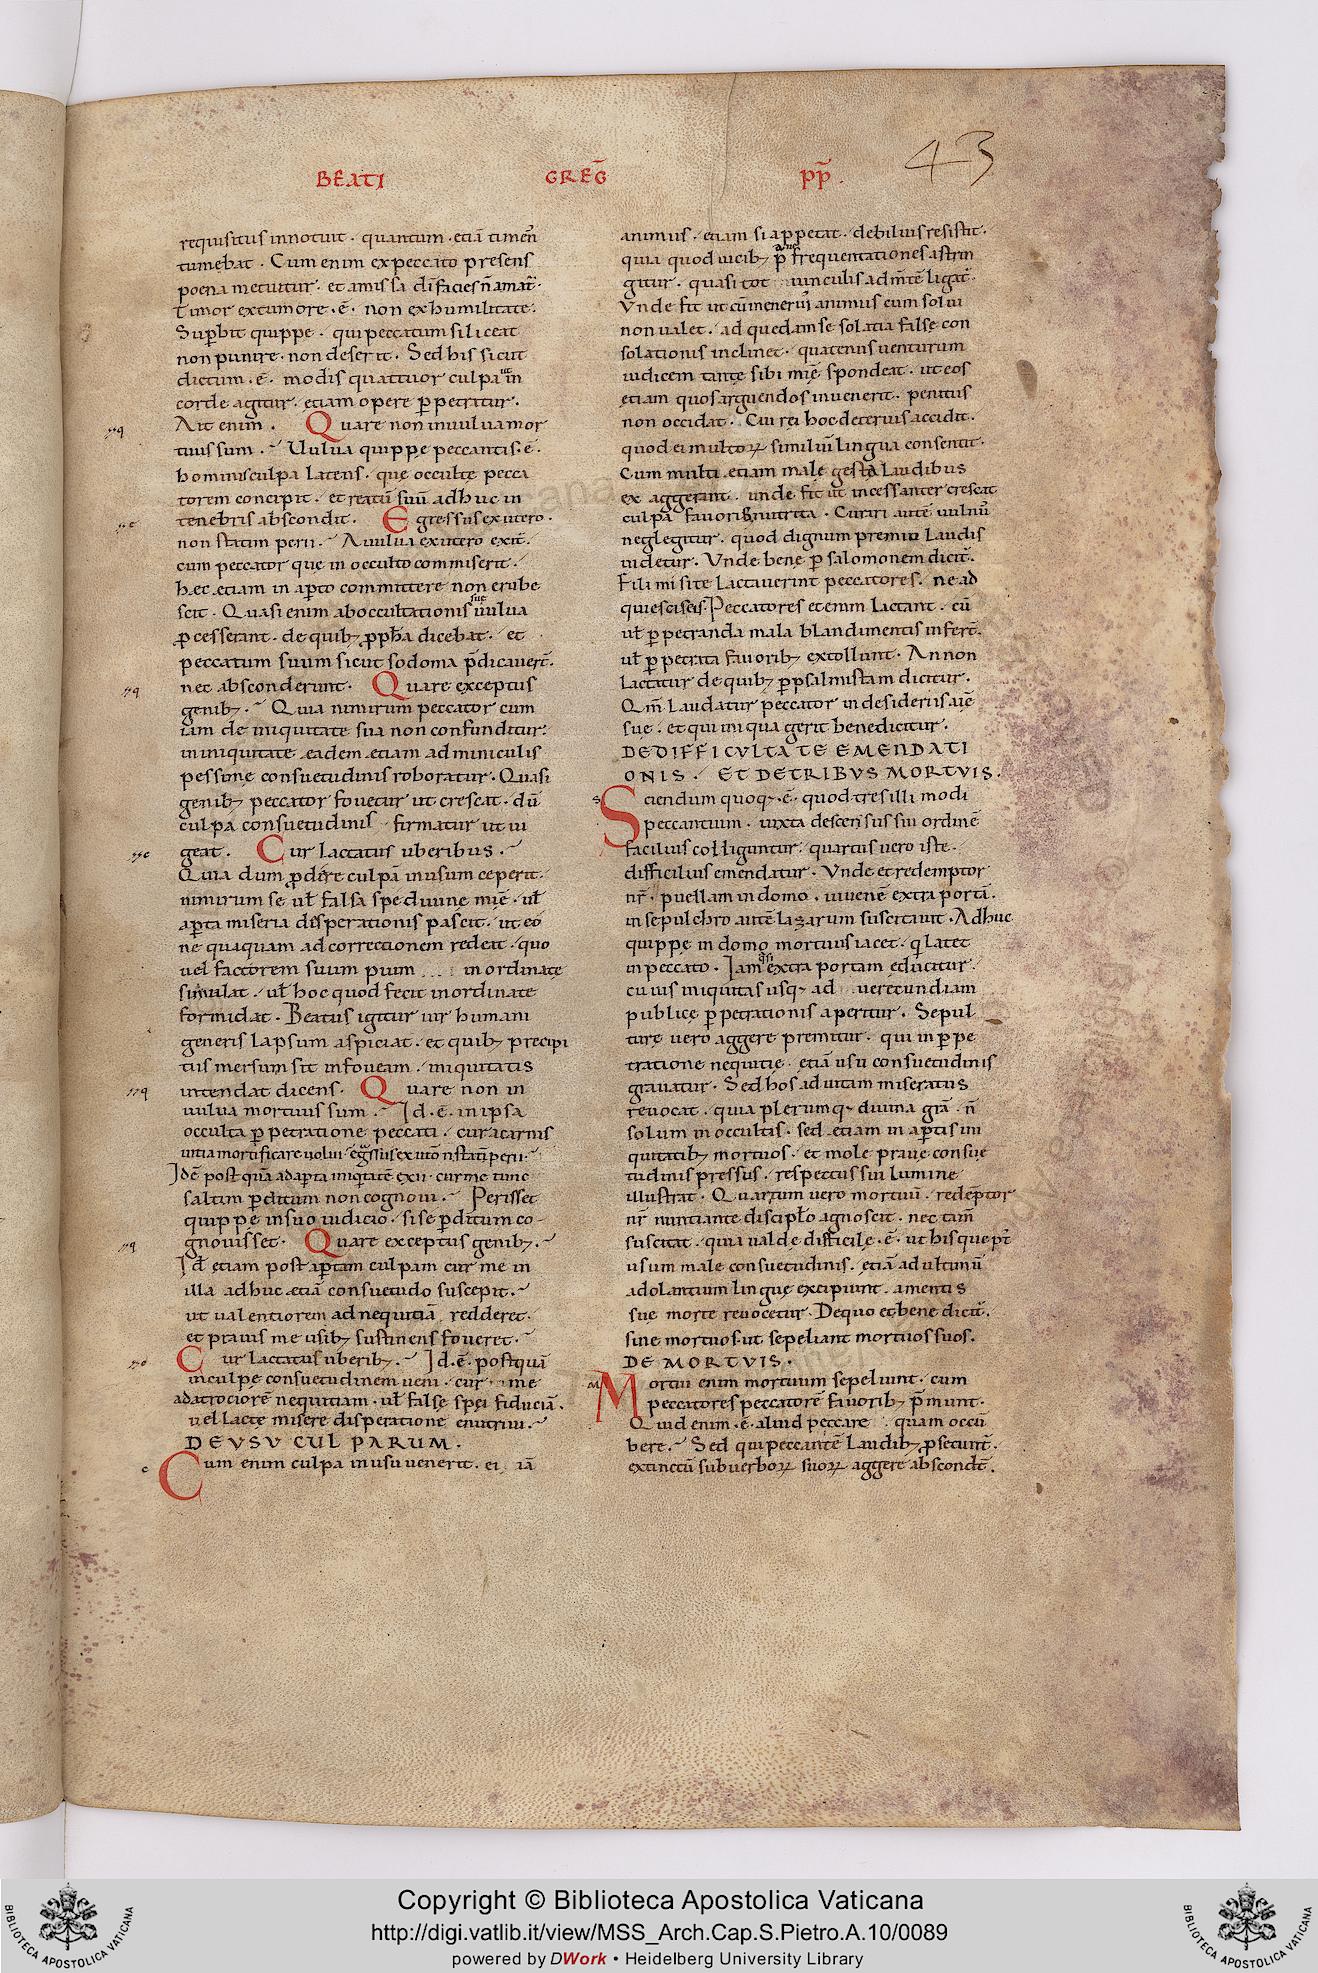 BEATI GREḠ PP̄.
43
requisitus innotuit · quantum · etiā timen̄
tumebat · Cum enim ex peccato presens
poena metuitur · et amissa dī facies n̄ amat᷑ ·
Timor ex tumore · ē · non ex humilitate ·
Sup̱bit quippe · qui peccatum si liceat
non punire · non deserit · Sed his sicut
dictum · ē · modis quattuor culpa ut in
corde agitur · etiam opere p̱petratur ·
Ait enim · Quare non in uulua mor
tuus sum · Uulua quippe peccantis · ē ·
hominis culpa latens · quę occultę pecca
torem concipit · et reatū suū adhuc in
tenebris abscondit · Egressus ex utero ·
non statim perii · A uulua ex utero exit᷑ ·
cum peccator quę in occulto commiserit ·
hęc etiam in ap̱to committere non erube
scit · Quasi enim ab occultationis suę uulua
p̱cesserant · de quib; p̱pħa dicebat · et
peccatum suum sicut sodoma p̄dicauert̄ ·
nec absconderunt · Quare exceptus
genib; · Quia nimirum peccator cum
iam de iniquitate sua non confunditur ·
in iniquitate eadem etiam adminiculis
pessimę consuetudinis roboratur · Quasi
genib; peccator fouetur ut crescat · dū
culpa consuetudinis firmatur ut ui
geat · Cur lactatus uberibus ·
Quia dum p̱dire culpā in usum ceperit ·
nimirum se ul̄ falsa spe diuinę mię̄ · ul̄
ap̱ta miseria desperationis pascit · ut eo
ne quaquam ad correctionem redeat · quo
uel factorem suum pium inordinatę
simulat · ul̄ hoc quod fecit inordinate
formidat · Beatus igitur uir humani
generis lapsum aspiciat · et quib; precipi
tiis mersum sit in foueam · iniquitatis
intendat dicens · Quare non in
uulua mortuus sum · Id · ē · in ipsa
occulta p̱petratione peccati · cur a carnis
uita mortificare nolui · egressus ex uto n̄ statī perii ·
Idē post quā ad ap̱ta iniq̇tatē exii · cur me tunc
saltim p̱ditum non cognoui · Perisset
quippe in suo iudicio · si se p̱ditum co-
gnouisset · Quare exceptus genib; ·
Id etiam post ap̱tam culpam cur me in
illa adhuc etiā consuetudo suscepit ·
ut ualentiorem ad nequitiā redderet ·
et prauis me usib; sustinens foueret ·
Cur lactatus uberib; · Id · ē · postquā
in culpę consuetudinem ueni · cur me
ad atrociorē nequitiam · ul̄ falsę spei fiduciā ·
uel lacte miserę disperatione enutriui ·
DE USU CULPARUM ·
Cum enim culpa in usu uenerit · ei iā
animus · etiam si appetat · debilius resistit ·
quia quod uicib; prauę frequentationes astrin
gitur · quasi tot uinculis ad m̄tē ligat᷑ ·
Vnde fit ut cū uenerūt animus eum solui
non ualet · ad quedam se solatia false con
solationis inclinet · quatenus uenturum
iudicem tantę sibi mię̄ spondeat · ut eos
etiam quos arguendos inuenerit · penitus
non occidat · Cui rei hoc deterius accidit ·
quod ei multoꝝ similiū lingua consentit ·
Cum multi etiam male gesta laudibus
ex aggerant · unde fit ut incessanter crescat
culpa fauorib; nutrita · Curari autē uulnū
neglegitur · quod dignum premiū laudis
uidetur · Vnde bene p̱ salomonem dicit᷑ ·
Fili mi si te lactauerint peccatores · ne ad
quiescis eis · Peccatores etenim lactant · cū
ul̄ p̱petranda mala blandimentis infert̄ ·
ul̄ p̱petrata fauorib; extollunt · An non
lactatur de quib; p̱ psalmistam dicitur ·
Qm̄ laudatur peccator in desideriis aię̄
suę · et qui iniqua gerit benedicitur ·
DE DIFFICULTATE EMENDATI
ONIS · ET DE TRIBUS MORTUIS ·
Sciendum quoq; · ē · quod tres illi modi
peccantium · iuxta descensus sui ordinē
facilius colliguntur · quartus uero iste ·
difficilius emendatur · Vnde et redemptor
nr̄ · puellam in domo · iuuenē extra portā ·
in sepulchro autē lazarum suscitauit · Adhuc
quippe in domo mortuus iacet · q̇ latet
in peccato · Iam q̇si extra portam educitur ·
cuius iniquitas usq; ad uerecundiam
publicę p̱petrationis aperitur · Sepul
turę uero aggere premitur · qui in p̱pe
tratione nequitię · etiā usu consuetudinis
grauatur · Sed hos ad uitam miseratus
reuocat · quia plerumq; diuina gr̄a · n̄
solum in occultis · sed etiam in ap̱tis ini
quitatib; mortuos · et mole prauę consue
tudinis pressus · respectus sui lumine
illustrat · Quartum uero mortuū · redēptor
nr̄ nuntiante discipl̄o agnoscit · nec tam̄
suscitat · quia ualde difficilę · ē · ut his que p᷑
usum male consuetudinis · etiā adultinū
adolantium linguę excipiunt · a mentis
suę morte reuocetur · De quo et bene dicit᷑ ·
sine mortuos · ut sepeliant mortuos suos ·
DE MORTUIS ·
Mortui enim mortuum sepeliunt · cum
peccatores peccatorē fauorib; p̄munt ·
Quid enim · ē · aliud peccare quam occū
bere · Sed qui peccantē laudib; p̱secunt᷑ ·
extinctū sub uerboꝝ suoꝝ aggere abscondt̄ ·
Copyright © Biblioteca Apostolica Vaticana
http://digi.vatlib.it/view/MSS_Arch.Cap.S.Pietro.A.10/0089
powered by DWork • Heidelberg University Library
BIBLIOTECA APOSTOLICA VATICANA
BIBLIOTECA APOSTOLICA VATICANA